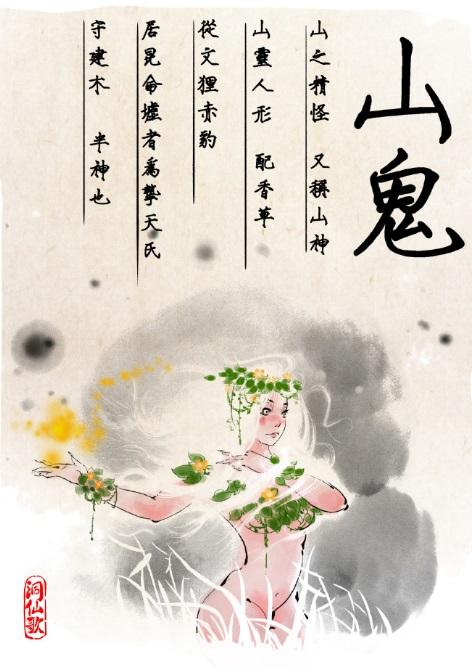 山鬼
山之精怪 又稱山神
山靈人形 配香草
從文狸赤豹
居昆侖墟者爲擎天氏
守建木 半神也
洞仙歌